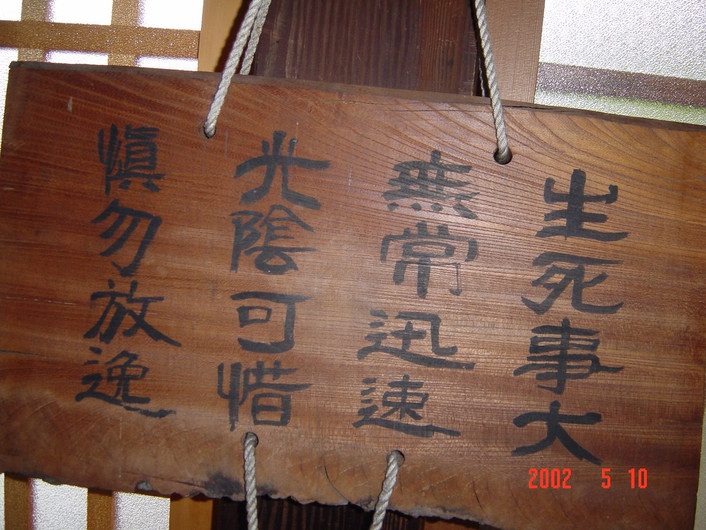 生死事大
無常迅速
光陰可惜
慎勿放逸
2002 5 10